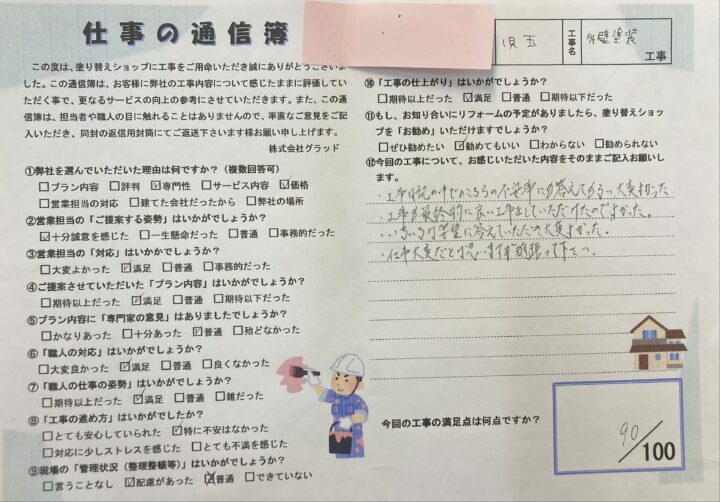 仕事の通信簿
児玉
工事名
外壁塗装
工事
この度は、塗り替えショップに工事をご用命いただき誠にありがとうございま
した。この通信簿は、お客様に弊社の工事内容について感じたままに評価してい
ただく事で、更なるサービスの向上の参考にさせていただきます。また、この通
信簿は、担当者や職人の目に触れることはありませんので、率直なご意見をご記
入いただき、同封の返信用封筒にてご返送下さいます様お願い申し上げます。
株式会社グラッド
①弊社を選んでいただいた理由は何ですか?(複数回答可)
□プラン内容 □評判 ☑専門性 □サービス内容 ☑価格
□営業担当の対応 □建てた会社だったから □弊社の場所
②営業担当の「ご提案する姿勢」はいかがでしょうか?
☑十分誠意を感じた □一生懸命だった □普通 □事務的だった
③営業担当の「対応」はいかかでしょうか?
□大変よかった ☑満足 □普通 □事務的だった
④ご提案させていただいた「プラン内容」はいかがでしょうか?
□期待以上だった ☑満足 □普通 □期待以下だった
⑤プラン内容に「専門家の意見」はありましたでしょうか?
□かなりあった □十分あった ☑普通 □殆どなかった
⑥「職人の対応」はいかがでしょうか?
□大変良かった ☑満足 □普通 □良くなかった
⑦「職人の仕事の姿勢」はいかがでしょうか?
□期待以上だった ☑満足 □普通 □雑だった
⑧「工事の進め方」はいかがでしたか?
□とても安心していられた ☑特に不安はなかった
□対応に少しストレスを感じた □とても不満を感じた
⑨現場の「管理状況(整理整頓等)」はいかがでしょうか?
□言うことなし ☑配慮があった ☒普通 □できていない
⑩「工事の仕上がり」はいかがでしょうか?
□期待以上だった ☑満足 □普通 □期待以下だった
⑪もし、お知り合いにリフォームの予定がありましたら、塗り替えショッ
プを「お勧め」いただけますでしょうか?
□ぜひ勧めたい ☑勧めてもいい □わからない □勧められない
⑫今回の工事について、お感じいただいた内容をそのままご記入お願いし
ます。
・工事日記の中でこちらの不安事にも答えてもらい大変よかった
・工事も最終的に良い工事をしていただけたのでよかった。
・いろいろな要望に答えていただいて大変よかった。
・仕事大変だとは思います頑張って下さい。
今回の工事の満足点は何点ですか?
90/100